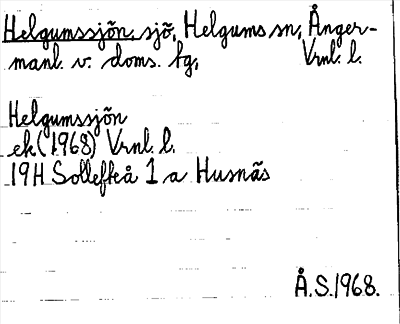 Helgumssjön, sjö, Helgums sn, Ånger-
manl. v. doms. fg, Vrnl. l.
Helgumssjön
ek (1968) Vrnl. l.
19H Sollefteå 1 a Husnäs
Å.S. 1968.